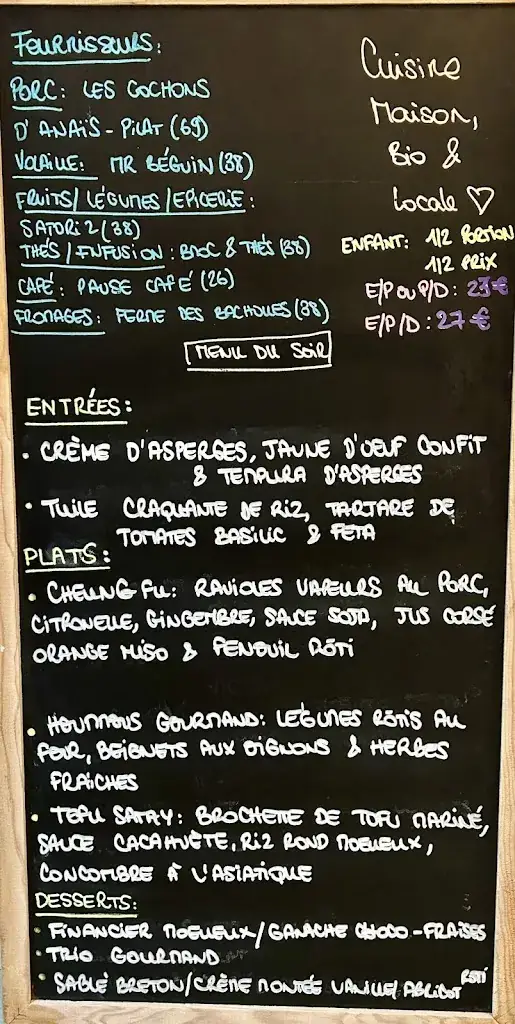 FOURNISSEURS:
PORC: LES COCHONS
D'ANAÏS - PILAT (69)
VOLAILLE: MR BÉGUIN (38)
FRUITS/LÉGUMES/EPICERIE:
SATORIZ (38)
THÉS/INFUSION: BROC & THÉS (38)
CAFÉ: PAUSE CAFÉ (26)
FROMAGES: FERME DES BACHOLLES (38)
Cuisine
Maison,
Bio &
Locale ♡
ENFANT: 1/2 PORTION
1/2 PRIX
E/P OU P/D: 23€
E/P/D: 27€
MENU DU SOIR
ENTRÉES:
• CRÈME D'ASPERGES, JAUNE D'OEUF CONFIT
& TEMPURA D'ASPERGES
• TUILE CRAQUANTE DE RIZ, TARTARE DE
TOMATES BASILIC & FETA
PLATS:
• CHEUNG FU: RAVIOLES VAPEURS AU PORC,
CITRONELLE, GINGEMBRE, SAUCE SOJA, JUS CORSÉ
ORANGE MISO & FENOUIL RÔTI
• HOUMMOUS GOURMAND: LÉGUMES RÔTIS AU
FOUR, BEIGNETS AUX OIGNONS & HERBES
FRAICHES
• TOFU SATAY: BROCHETTE DE TOFU MARINÉ,
SAUCE CACAHUÈTE, RIZ ROND MOELLEUX,
CONCOMBRE À L'ASIATIQUE
DESSERTS:
• FINANCIER MOELLEUX/GANACHE CHOCO-FRAISES
• TRIO GOURMAND
• SABLÉ BRETON/CRÈME MONTÉE VANILLE/ABRICOT RÔTI